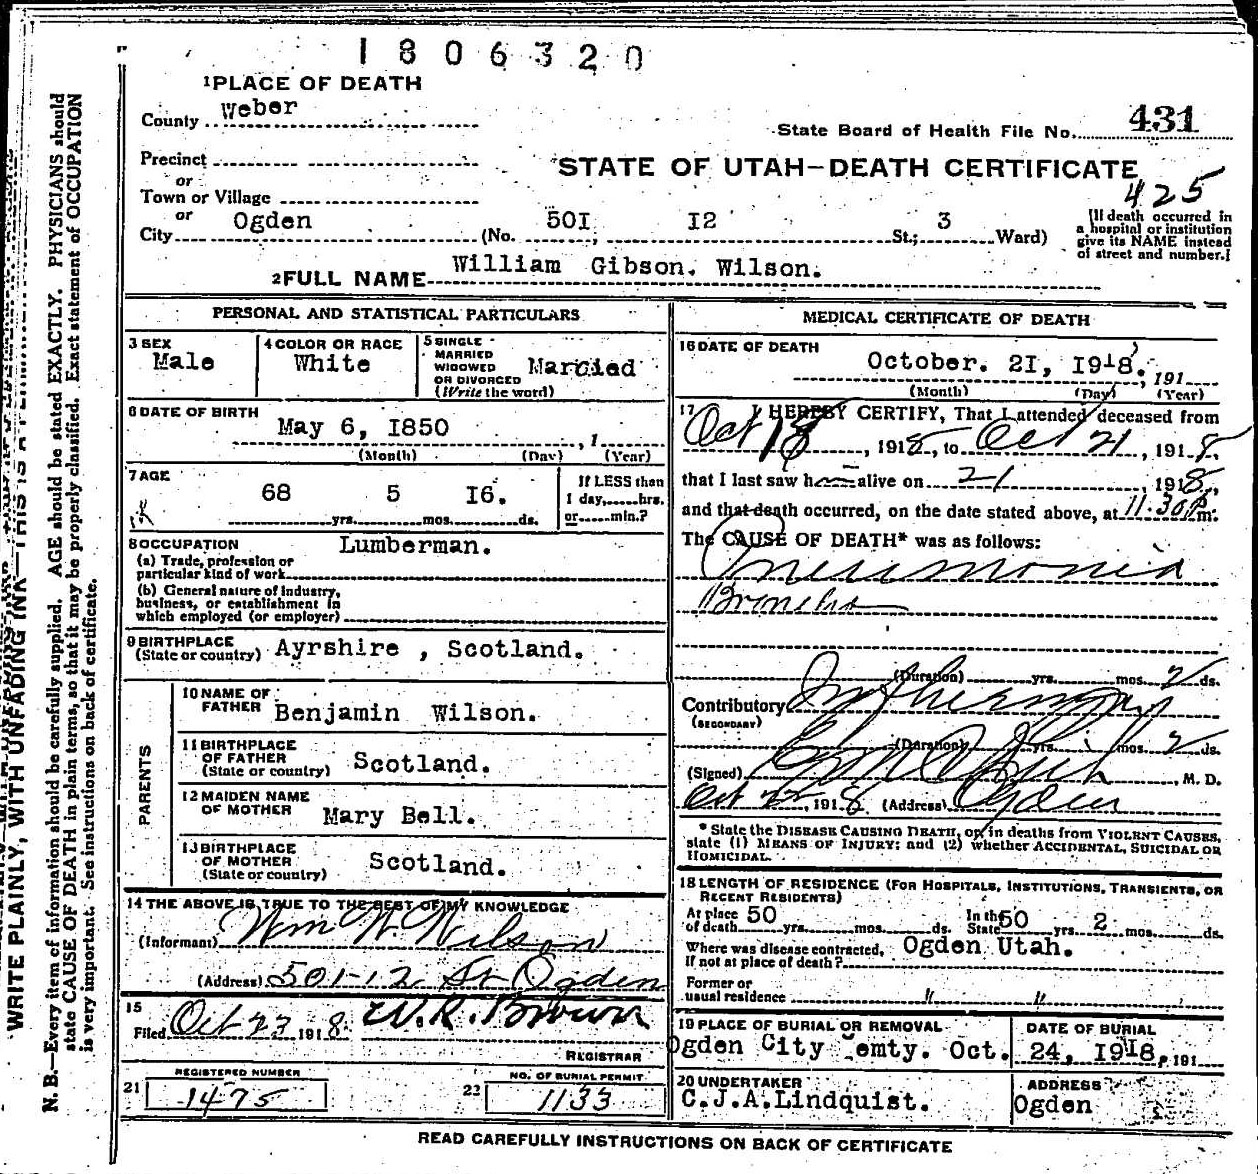 1806320
1 PLACE OF DEATH
County Weber
State Board of Health File No. 431
Precinct
or
STATE OF UTAH—DEATH CERTIFICATE
425
Town or Village
or
City Ogden (No. 50I, I2 St.; 3 Ward)
[If death occurred in
a hospital or institution
give its NAME instead
of street and number.]
2 FULL NAME William Gibson. Wilson.
PERSONAL AND STATISTICAL PARTICULARS
3 SEX
Male
4 COLOR OR RACE
White
5 SINGLE
MARRIED
WIDOWED
OR DIVORCED
(Write the word)
Married
6 DATE OF BIRTH
May 6, I850, 1
(Month) (Day) (Year)
7 AGE
68 yrs. 5 mos. I6. ds.
If LESS than
1 day, hrs.
or min.?
8 OCCUPATION
Lumberman.
(a) Trade, profession or
particular kind of work
(b) General nature of industry,
business, or establishment in
which employed (or employer)
9 BIRTHPLACE
(State or country) Ayrshire , Scotland.
PARENTS
10 NAME OF
FATHER Benjamin Wilson.
11 BIRTHPLACE
OF FATHER
(State or country) Scotland.
12 MAIDEN NAME
OF MOTHER Mary Bell.
13 BIRTHPLACE
OF MOTHER
(State or country) Scotland.
14 THE ABOVE IS TRUE TO THE BEST OF MY KNOWLEDGE
(Informant) Wm W. Wilson
(Address) 501-12 St Ogden
15
Filed Oct 23 1918. W. R. Brown
REGISTRAR
21 REGISTERED NUMBER
1475
22 NO. OF BURIAL PERMIT
1133
MEDICAL CERTIFICATE OF DEATH
16 DATE OF DEATH
October. 2I, I918., 191
(Month) (Day) (Year)
17 I HEREBY CERTIFY, That I attended deceased from
Oct 18, 1918, to Oct 21, 1918,
that I last saw h alive on 21, 1918,
and that death occurred, on the date stated above, at 11:30 P.m.
The CAUSE OF DEATH* was as follows:
Pneumonia
Broncho
(Duration) yrs. mos. 2 ds.
Contributory
(SECONDARY)
(Duration) yrs. mos. 2 ds.
(Signed) M. D.
Oct 22, 1918 (Address) Ogden
* State the DISEASE CAUSING DEATH, or, in deaths from VIOLENT CAUSES,
state (1) MEANS OF INJURY; and (2) whether ACCIDENTAL, SUICIDAL OR
HOMICIDAL.
18 LENGTH OF RESIDENCE (FOR HOSPITALS, INSTITUTIONS, TRANSIENTS, OR
RECENT RESIDENTS)
At place
of death 50 yrs. mos. ds. In the
State 50 yrs. 2 mos. ds.
Where was disease contracted,
If not at place of death? Ogden Utah.
Former or
usual residence " "
19 PLACE OF BURIAL OR REMOVAL
Ogden City Cemty. Oct.
DATE OF BURIAL
24, I918, 191
20 UNDERTAKER
C.J.A.Lindquist.
ADDRESS
Ogden
READ CAREFULLY INSTRUCTIONS ON BACK OF CERTIFICATE
WRITE PLAINLY, WITH UNFADING INK—THIS IS A PERMANENT RECORD
N. B.—Every item of information should be carefully supplied. AGE should be stated EXACTLY. PHYSICIANS should
state CAUSE OF DEATH in plain terms, so that it may be properly classified. Exact statement of OCCUPATION
is very important. See instructions on back of certificate.